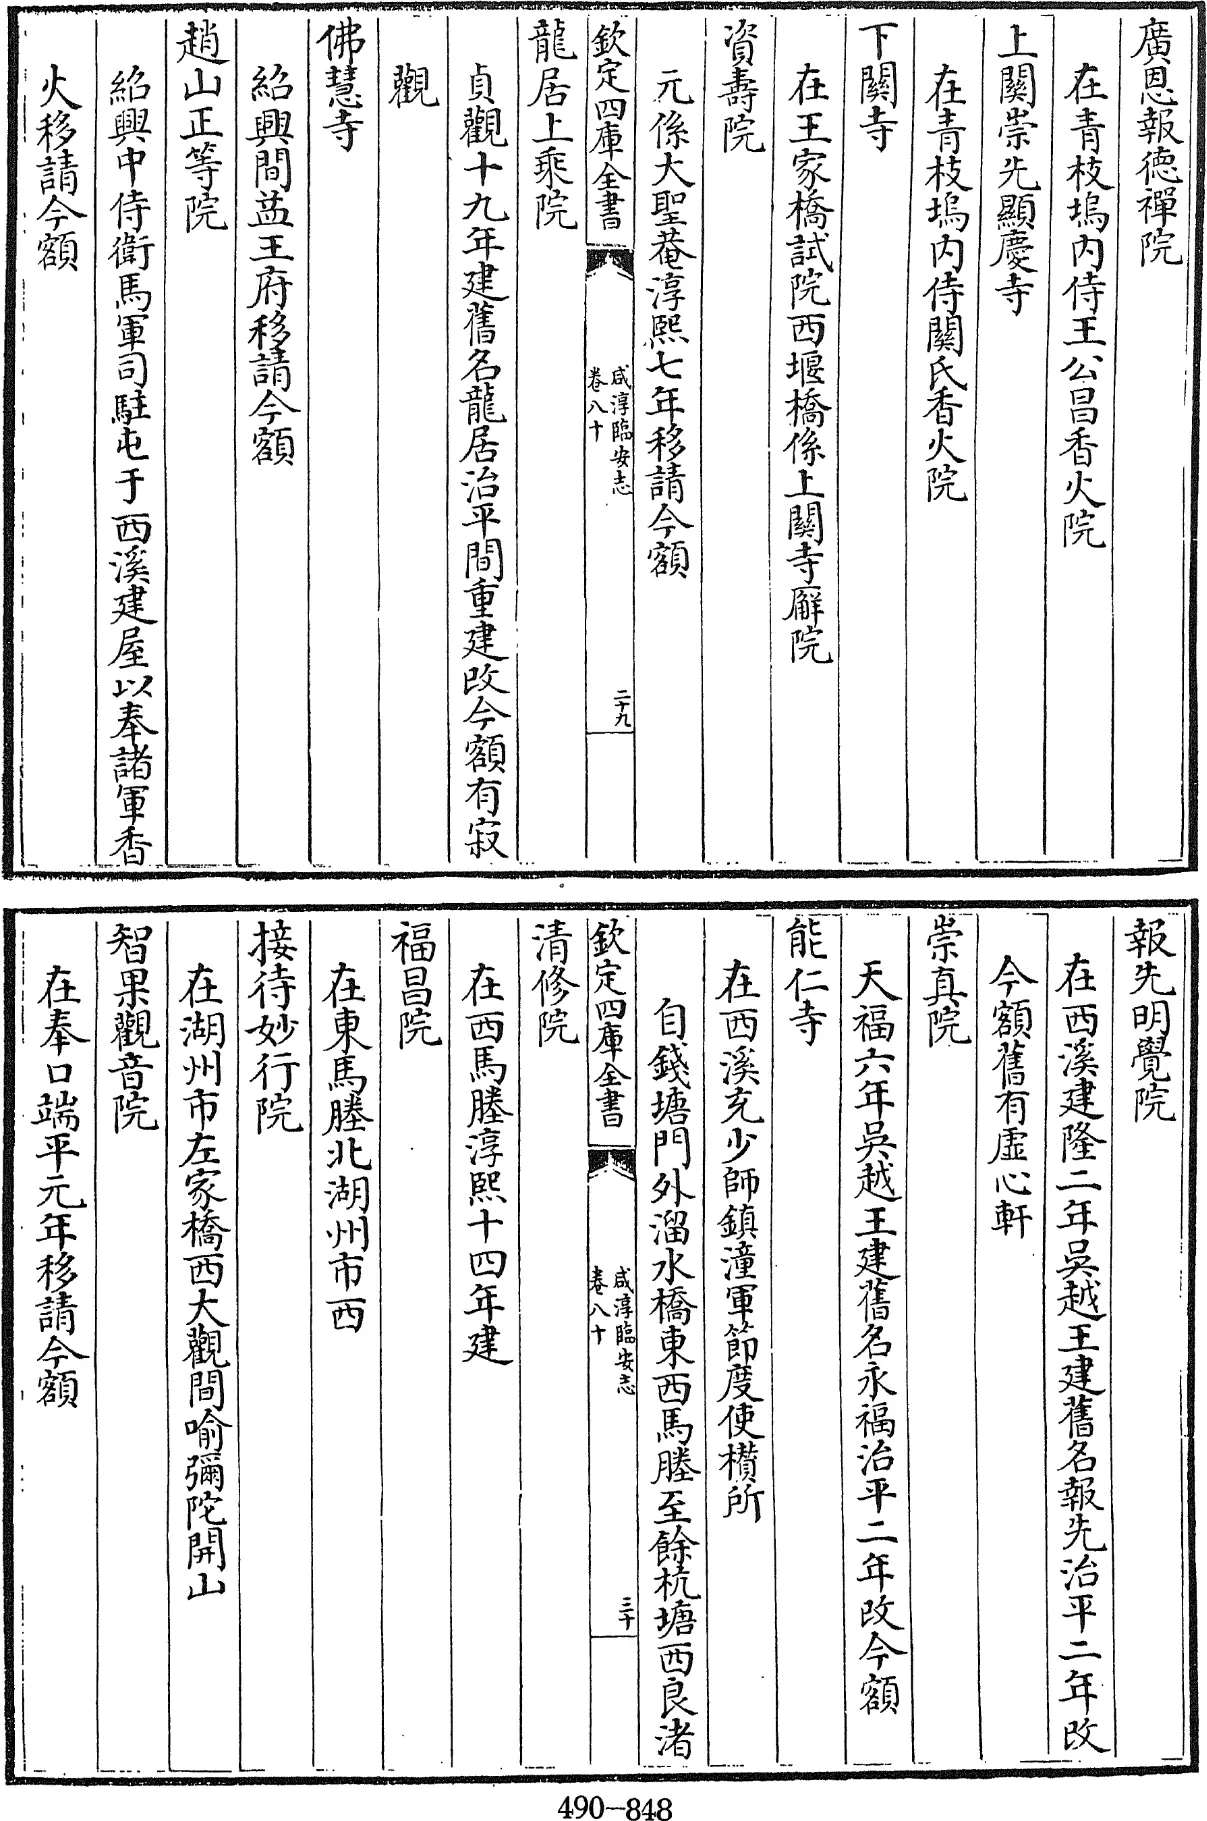 廣恩報德禪院
在青枝塢内侍王公昌香火院
上關崇先顯慶寺
在青枝塢内侍關氏香火院
下關寺
在王家橋試院西堰橋係上關寺廨院
資壽院
元係大聖菴淳熙七年移請今額
欽定四庫全書
咸淳臨安志
卷八十
二十九
龍居上乘院
貞觀十九年建舊名龍居治平間重建改今額有寂
觀
佛慧寺
紹興間益王府移請今額
趙山正等院
紹興中侍衛馬軍司駐屯于西溪建屋以奉諸軍香
火移請今額
報先明覺院
在西溪建隆二年吳越王建舊名報先治平二年改
今額舊有虛心軒
崇真院
天福六年吳越王建舊名永福治平二年改今額
能仁寺
在西溪充少師鎮潼軍節度使櫕所
自錢塘門外溜水橋東西馬塍至餘杭塘西良渚
欽定四庫全書
咸淳臨安志
卷八十
三十
清修院
在西馬塍淳熙十四年建
福昌院
在東馬塍北湖州市西
接待妙行院
在湖州市左家橋西大觀間喻彌陀開山
智果觀音院
在奉口端平元年移請今額
490-848